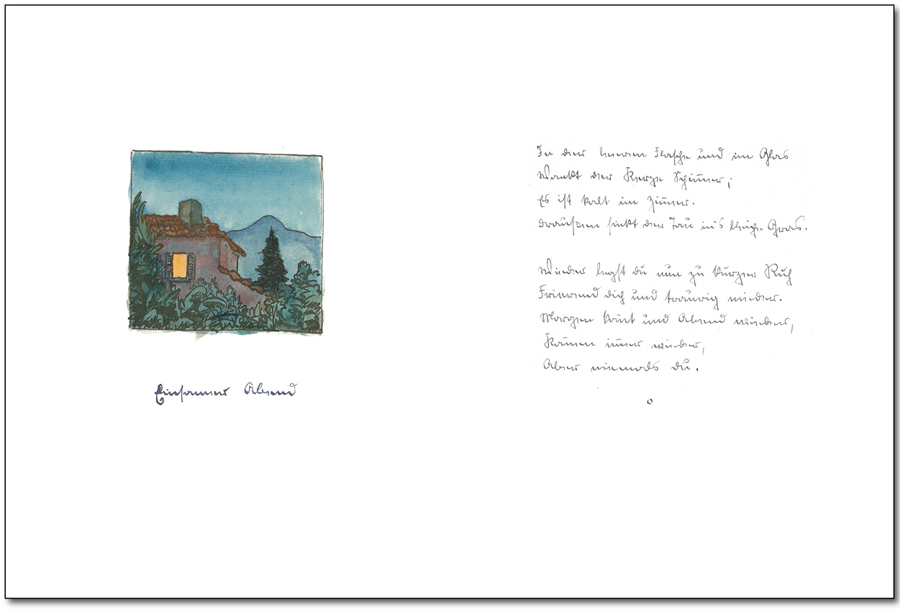 Einsamer Abend
In der leeren Flasche und im Glas
Wankt der Kerze Schimmer;
Es ist kalt im Zimmer.
Draußen sinkt der Tau ins bleiche Gras.
Wieder legst du nun zu kurzer Ruh
Frierend dich und traurig nieder.
Morgen kommt und Abend wieder,
Kommen immer wieder,
Aber niemals du.